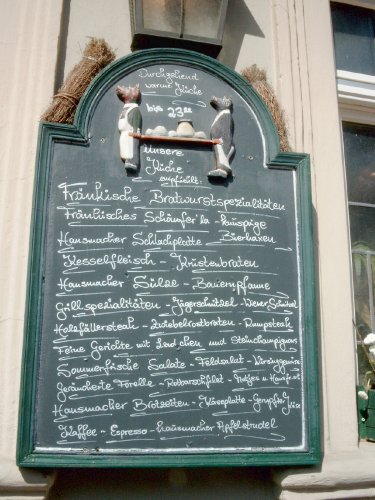 Durchgehend
warme Küche
bis 23 00
unsere
Küche
empfiehlt:
Fränkische Bratwurstspezialitäten
Fränkisches Schäufer'la -
Hausmacher Schlachtplatte - Bierhaxen
Kesselfleisch - Krustenbraten
Hausmacher Sülze - Bauernpfanne
Grillspezialitäten - Jägerschnitzel - Wiener Schnitzel
Holzfällersteak - Zwiebelrostbraten - Rumpsteak
Feine Gerichte mit Lendchen und Steinchampignons
Sommerfrische Salate - Feldsalat - Wirsinggemüse
Geräucherte Forelle - Rotbarschfilet -
Hausmacher Brotzeiten - Käseplatte - Gerupfter Käse
Kaffee - Espresso - hausmacher Apfelstrudel